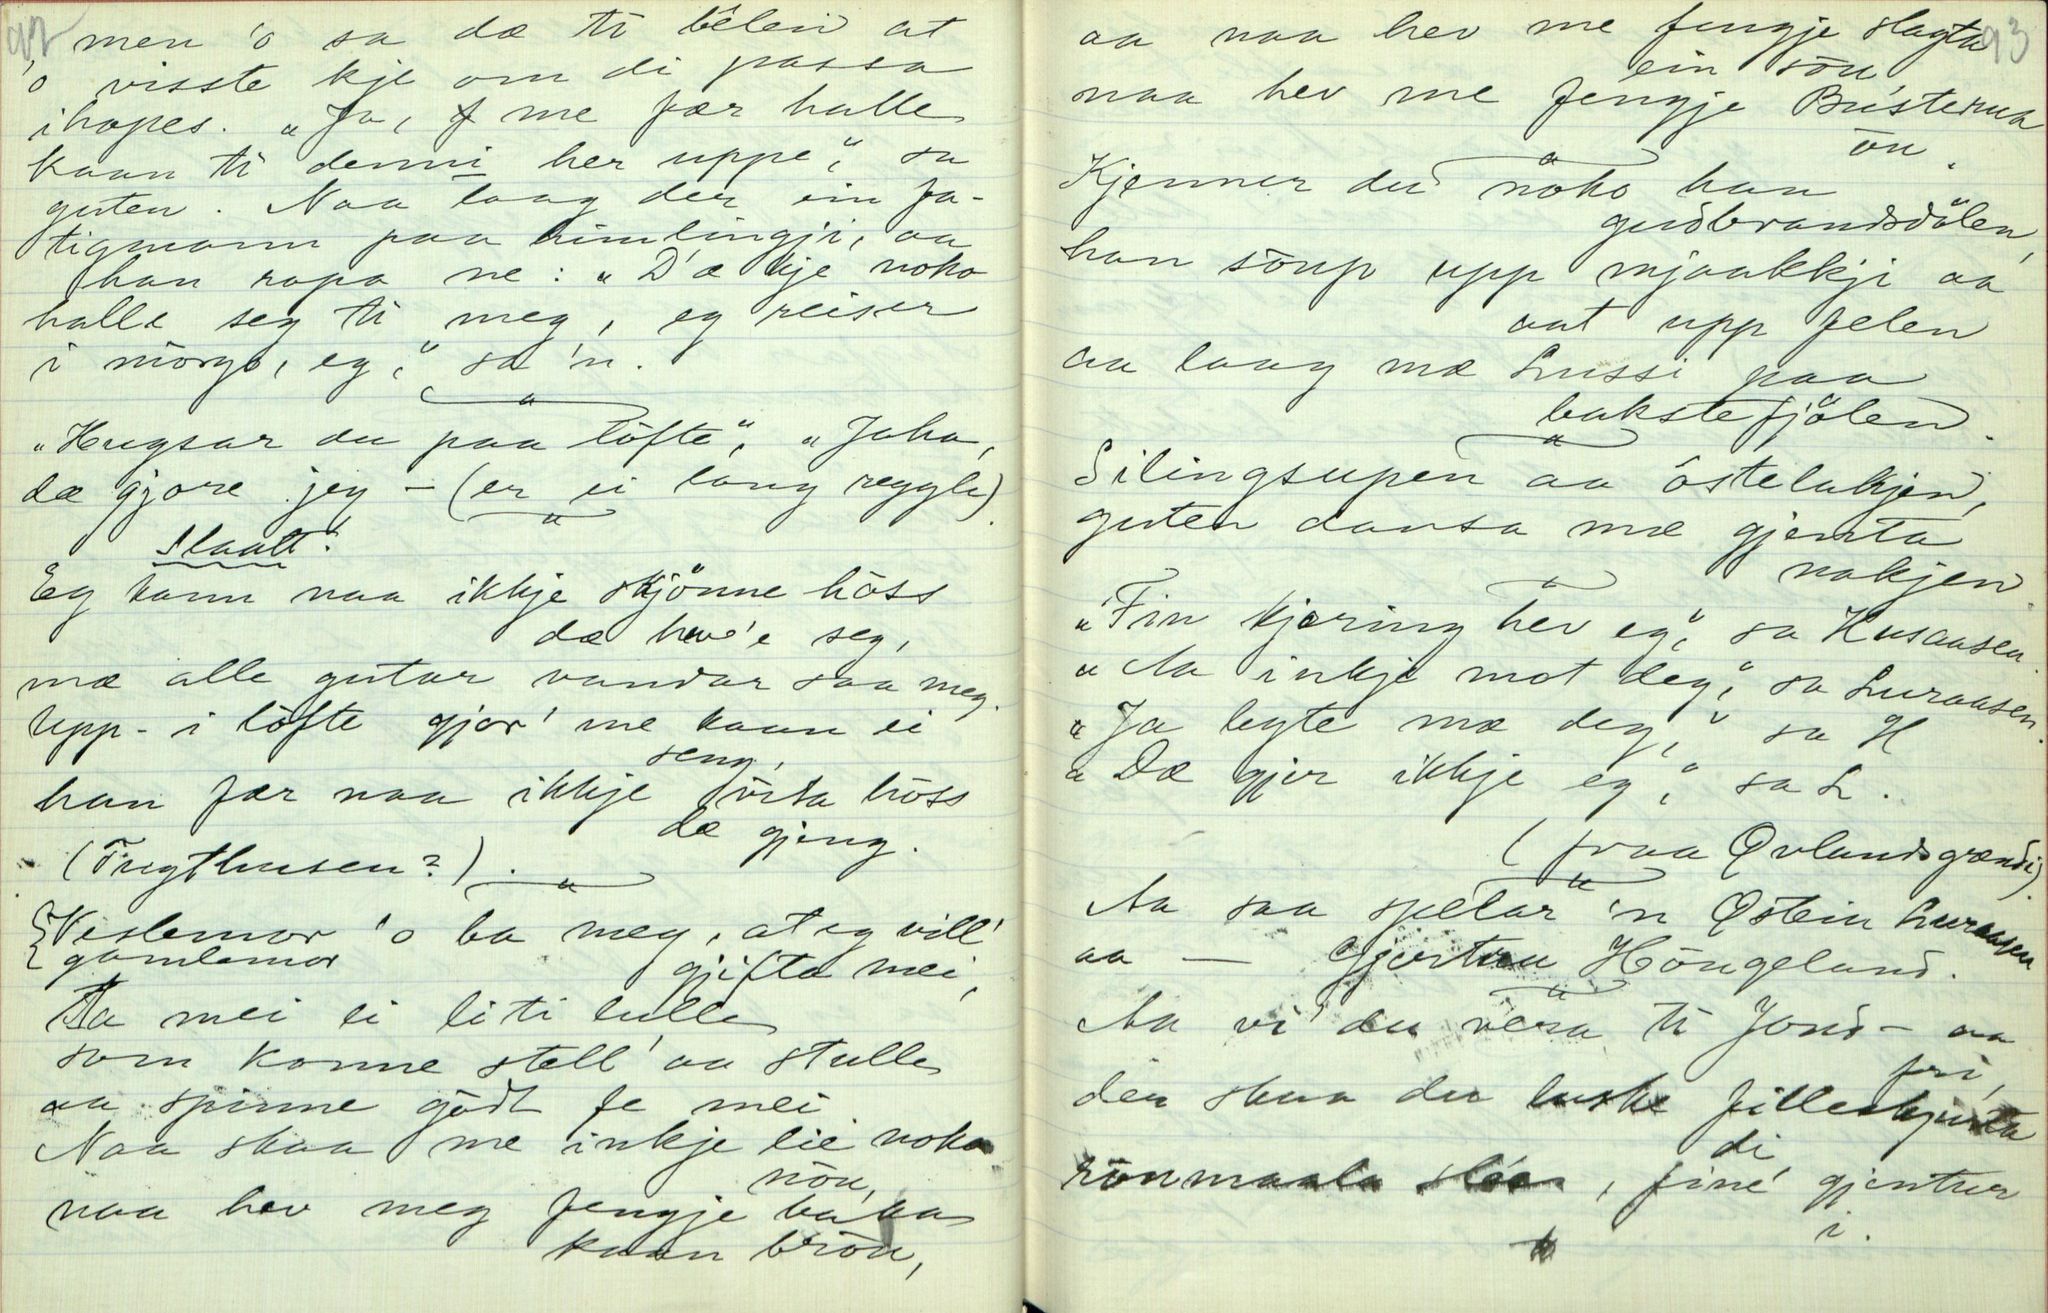 92
men 'o sa dæ ti bêlen at
'o visste kje om di passa
ihopes. "Ja, me fær halle
kaan ti denni her uppe", sa
guten. Naa laag der ein fa-
tigmann paa himlingji, aa
han ropa ne: "D'æ kje noko
halle seg ti meg, eg reiser
i môrgo, eg," sa 'n.
"Hugsar du paa lôfte", "Jaha,
dæ gjore jeg – (er ei lang reggle).
Slaatt:
Eg kann naa ikkje skjönne hôss
dæ hev'e seg,
mæ alle gutar vandar saa meg.
Upp- i lôfte gjor' me kaan ei
seng,
han fær naa ikkje vita hôss
dæ gjeng.
(Trugthusen?).
Veslemor 'o ba meg, at eg vill'
gamlemor gjifta mei,
Ta mei ei liti lulle
som konne stell' aa stulle
aa spinne gôdt fe mei
Naa skaa me inkje lie noko
nôu,
naa hev meg fengje baka
kaan brôu,
93
aa naa hev me fengje slagta
ein sôu
naa hev me fengje Bústerua
ôu.
Kjenner du noko han
gudbrandsdölen,
han sôup upp mjaakkji aa
aat upp felen
aa laag mæ Lussi paa
bakstefjölen.
Silingsupen aa ôstelukjen,
guten dansa mæ gjenta
nakjen.
"Fin kjæring hev eg," sa Husaasen.
"Aa inkje mot deg," sa Luraasen.
"Ja bytte mæ deg," sa H
"Dæ gjer ikkje eg," sa L.
(fraa Øvlandsgrændi).
Aa saa spêlar 'n Østein Luraasen
aa — Gjertru Hôngeland.
Aa vi' du vera ti Jons – aa
fri,
der skaa du luske filleskjurta
di
rônmaala , fine' gjentur
i.